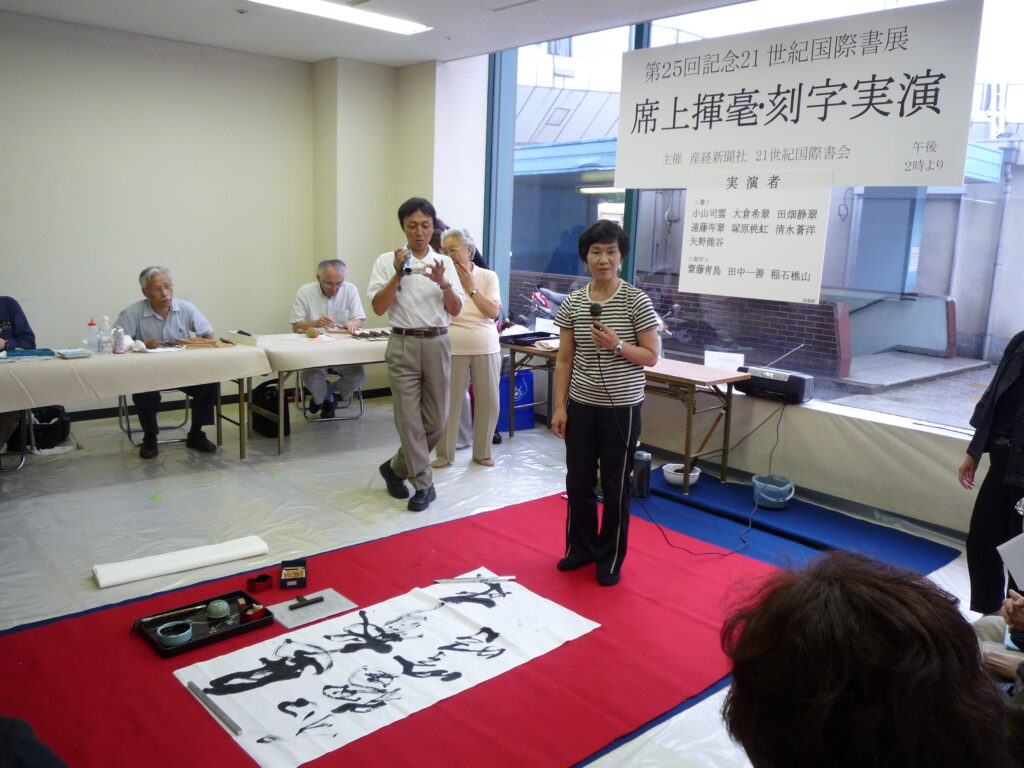 第25回記念21世紀国際書展
席上揮毫・刻字実演
主催 産経新聞社 21世紀国際書会
午後
2時より
実演者
<書>
小山司雲 大倉希翠 田畑静翠
遠藤岑翠 塚原桃虹 清水蒼洋
矢野龍谷
<刻字>
齋藤青鳥 田中一善 稲石樵山